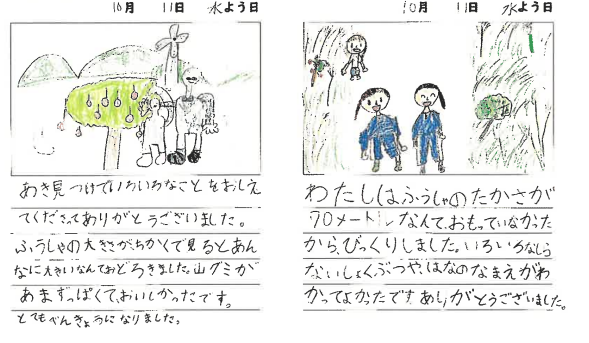 10月 11日 水よう日
あき見つけでいろいろなことをおしえ
てくださってありがとうございました。
ふうしゃの大きさがちかくで見るとあん
なに大きいなんておどろきました。山グミが
あまずっぱくておいしかったです。
とてもべんきょうになりました。
10月 11日 水よう日
わたしは、ふうしゃのたかさが
70メートルなんて、おもっていなかった
から、びっくりしました。いろいろなしら
ないしょくぶつや、はなのなまえがわ
かってよかったです。ありがとうございました。